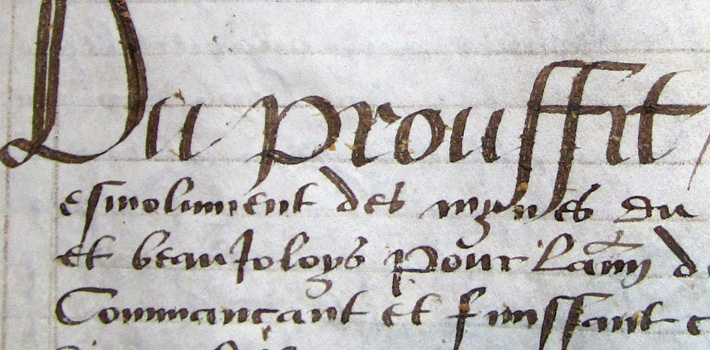 Du prouffit
esmolument des mynes du
et beauJoloys pour lann
Commancant et finissant